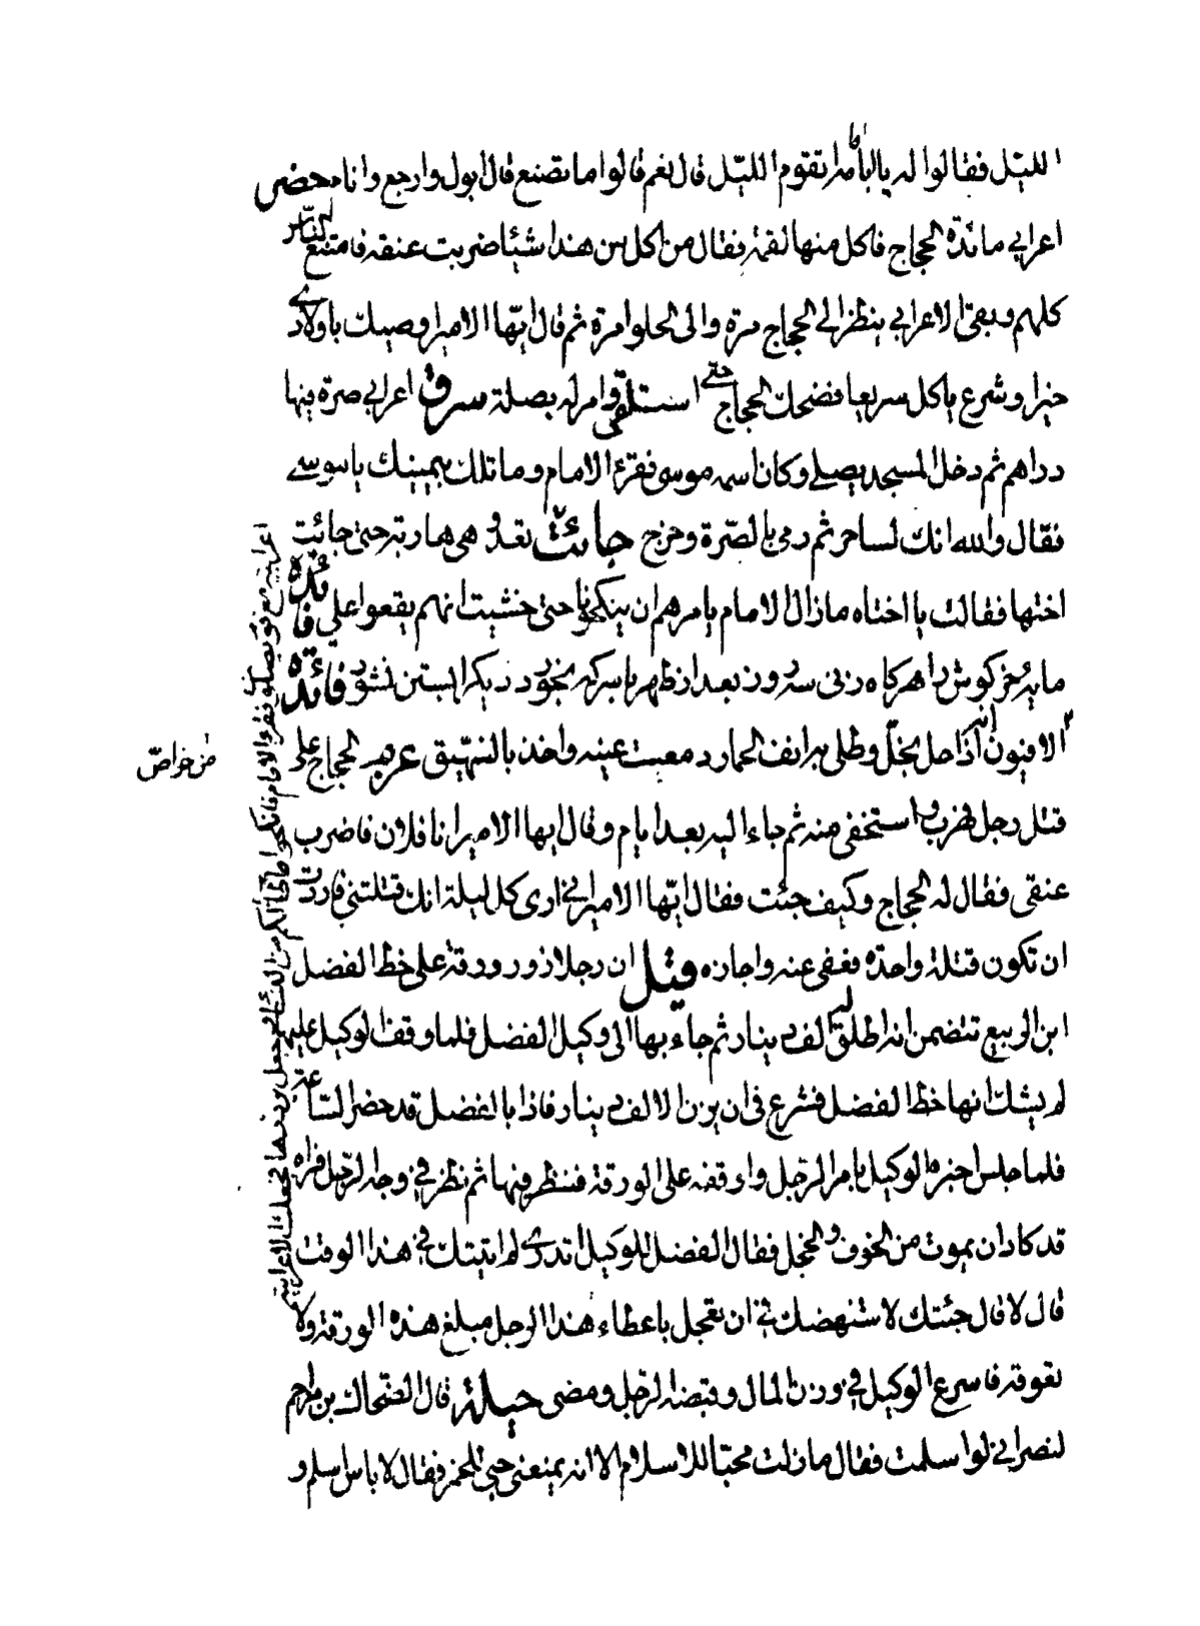 الليل فقالوا له يا ابا مرة اتقوم الليل قال نعم قالوا ما تصنع قال ابول وارجع وانام حضر
اعرابي مائدة الحجاج فاكل منها لقمة فقال من اكل من هذا شيئا ضربت عنقه فامتنع الناس
كلهم وبقى الاعرابي ينظر الى الحجاج مرة والى الحلوا مرة ثم قال ايها الامير اوصيك باولادي
خيرا وشرع ياكل سريعا فضحك الحجاج حتى استلقى وامر له بصلة سرق اعرابي صرة فيها
دراهم ثم دخل المسجد يصلي وكان اسمه موسى فقرء الامام وما تلك بيمينك يا موسى
فقال والله انك لساحر ثم رمى بالصرة وخرج جائت تعدو هى هاربة حتى جائت
اختها فقالت يا اختاه مازال الامام يامرهم ان ينكحونا حتى خشيت انهم يقعوا علي فائدة
مايه خركوش را هركاه زنى سه روز بعد از طهر با سركه بخورد ديكر ابستن نشود فائدة
الافيون اذا حل بخل وطلى به انف الحمار دمعت عينه واخذ بالنهيق عزم الحجاج على
قتل رجل فهرب واستخفى منه ثم جاء اليه بعد ايام وقال ايها الامير انا فلان فاضرب
عنقى فقال له الحجاج وكيف جئت فقال ايها الامير اني ارى كل ليلة انك قتلتني فاردت
ان تكون قتلة واحدة فعفى عنه واجازه قيل ان رجلا زور ورقة على خط الفضل
ابن الربيع تتضمن انه اطلق له الف دينار ثم جاء بها الى وكيل الفضل فلما وقف الوكيل عليها
لم يشك انها خط الفضل فشرع فى ان يزن الالف دينار فاذا بالفضل قد حضر الساعة
فلما جلس اخبره الوكيل بامر الرجل واوقفه على الورقة فنظر فيها ثم نظر في وجه الرجل فراه
قد كاد ان يموت من الخوف والخجل فقال الفضل للوكيل اتدري لم اتيتك في هذا الوقت
قال لا قال جئتك لاستنهضك في ان تعجل باعطاء هذا الرجل مبلغ هذه الورقة ولا
تعوقه فاسرع الوكيل في وزن المال وقبضه الرجل ومضى حيلة قال الضحاك بن مزاحم
لنصراني لو اسلمت فقال مازلت محبا للاسلام الا انه يمنعني حبي للخمر فقال لا باس اسلم و
اعرابية مع قوم يصلون فقرء الامام فانكحوا ما طاب لكم من النساء وجعل يرددها فجعلت الاعرابية
من خواص